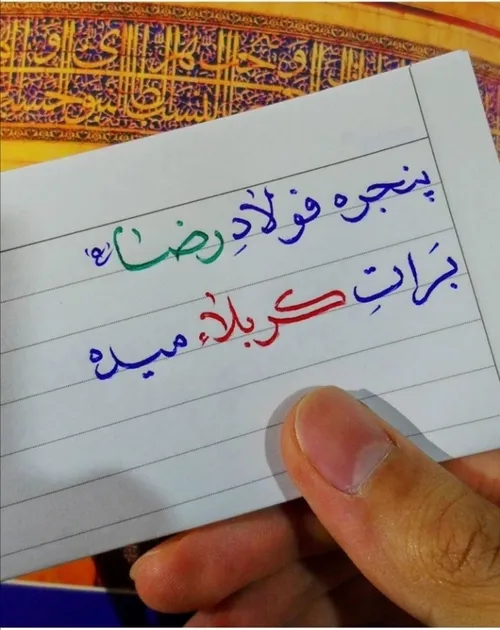 پنجره فولادِ رضا (ع)
بَراتِ کربلاء میده